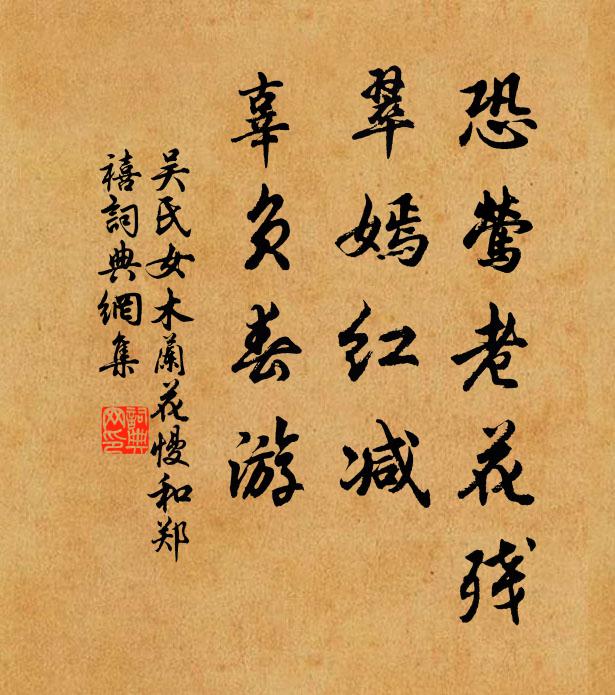 恐莺老花残
翠嫣红减
辜负春游
吴氏女木蘭花慢和郑
禧詞典網集
詞典网印